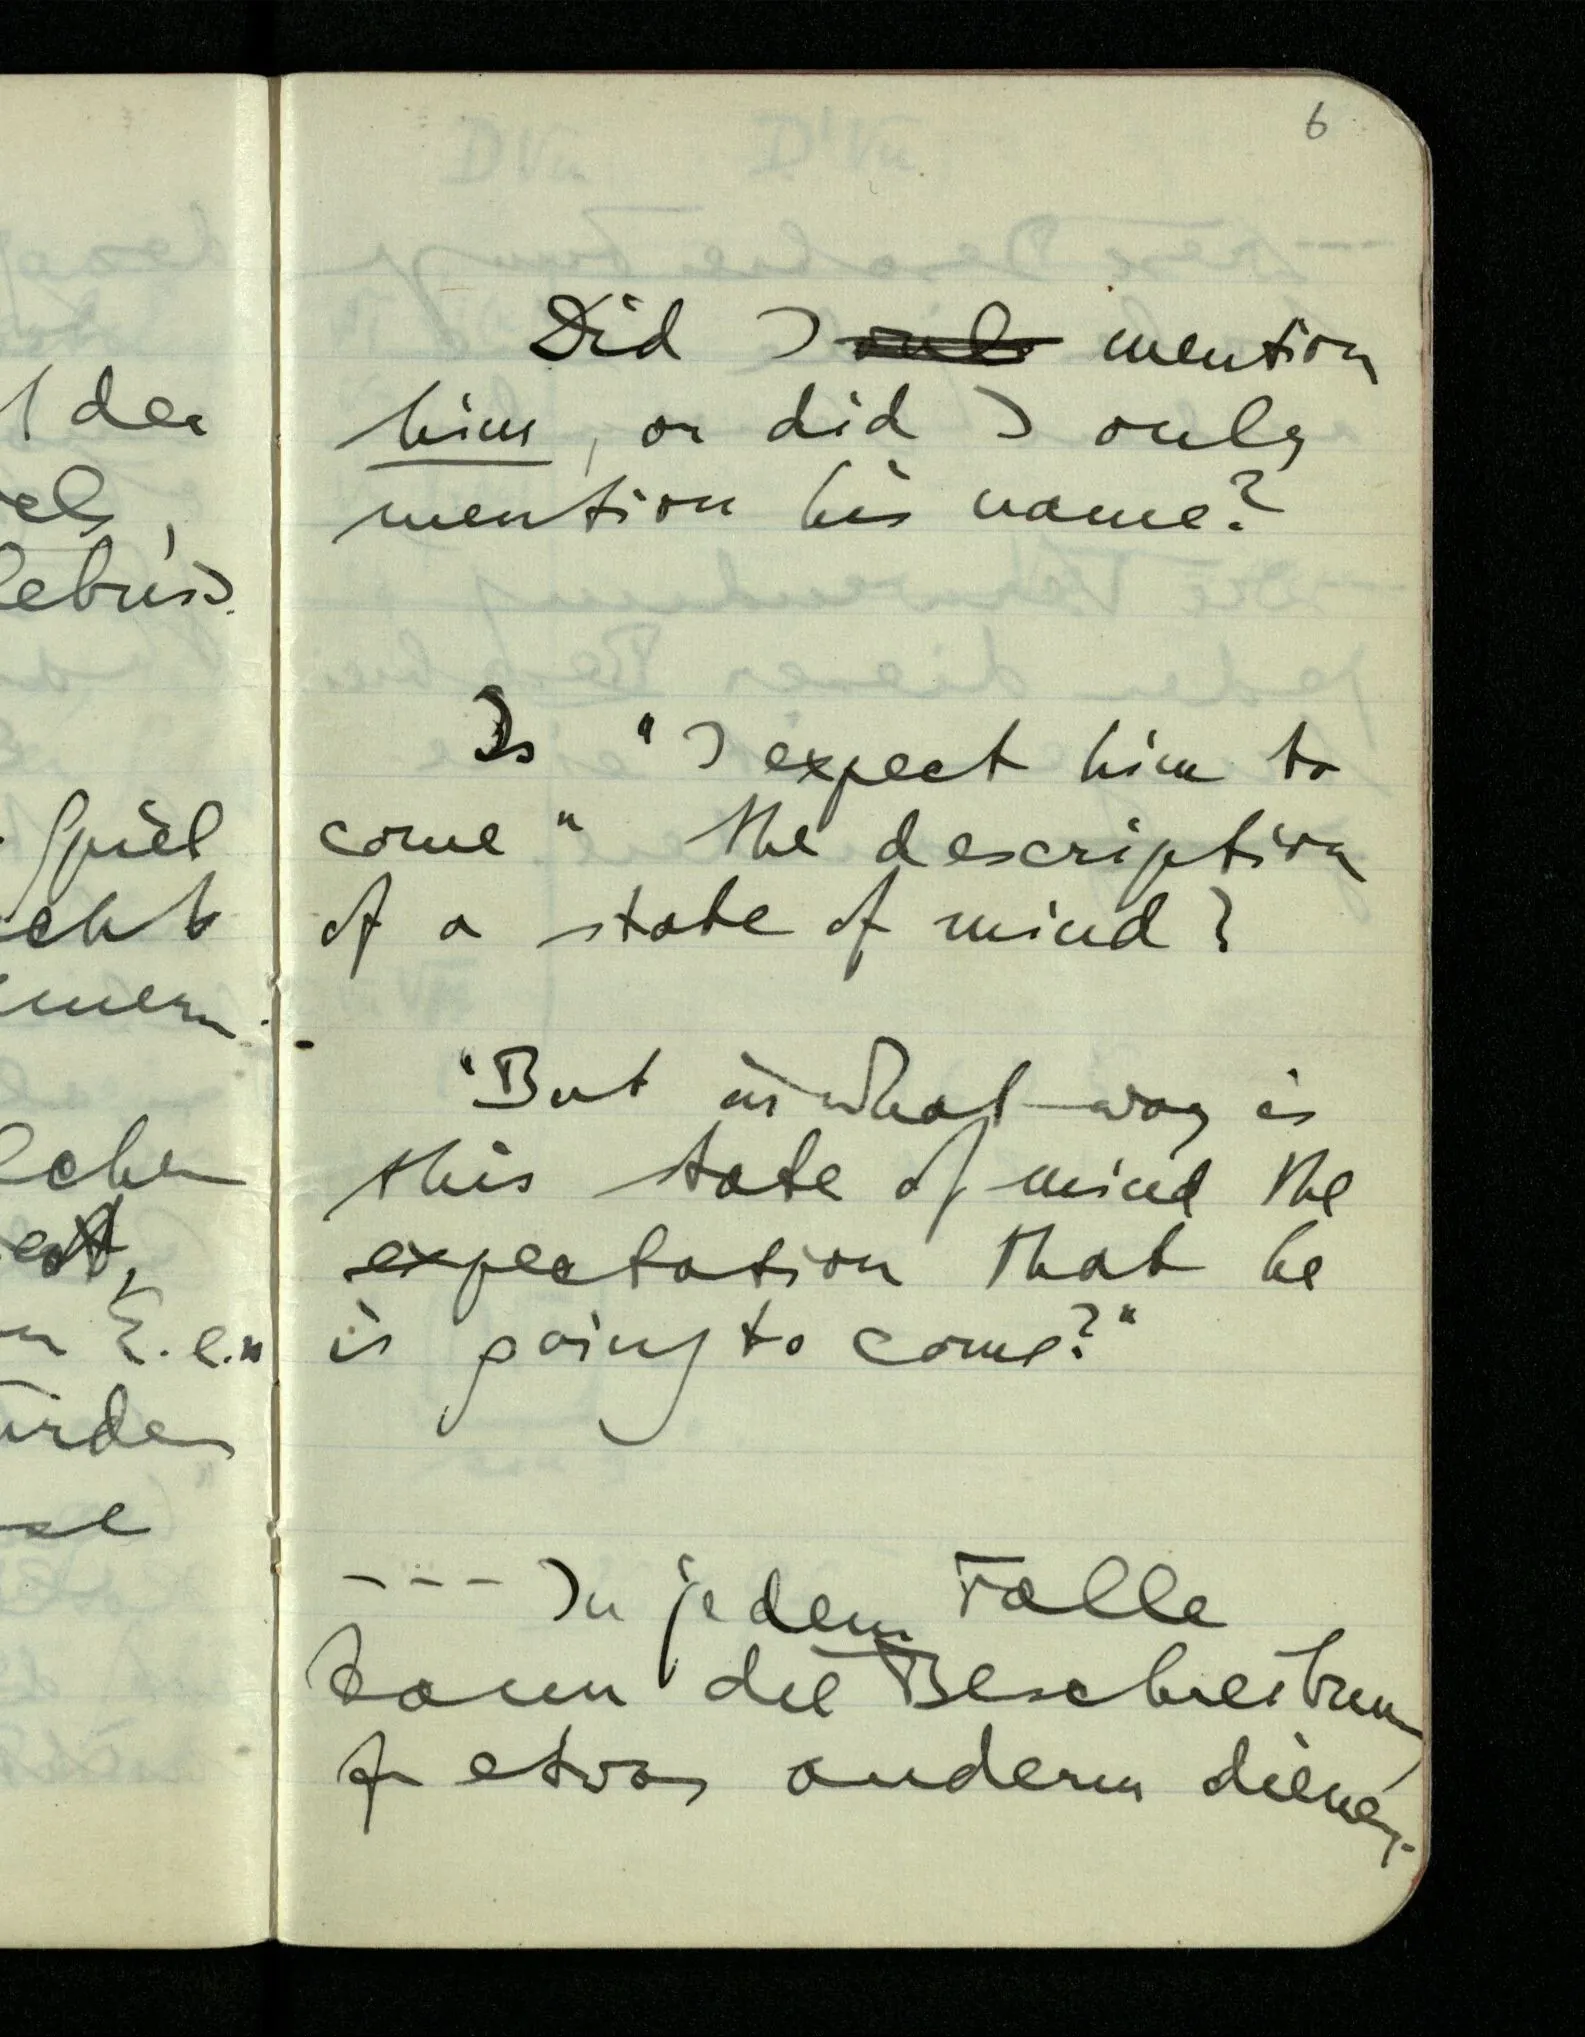 6
Did I only mention
him, or did I only
mention his name?
Is "I expect him to
come" the description
of a state of mind?
"But in what way is
this state of mind the
expectation that he
is going to come?"
--- In jedem Falle
kann die Beschreibung
zu etwas anderm dienen.
der
Spiel